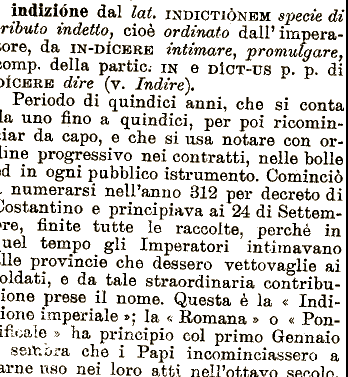 indizióne dal lat. INDICTIÒNEM specie di
ributo indetto, cioè ordinato dall' impera-
ore, da IN-DÍCERE intimare, promulgare,
comp. della partic. IN e DÌCT-US p. p. di
DÍCERE dire (v. Indire).
Periodo di quindici anni, che si conta
la uno fino a quindici, per poi ricomin-
ciar da capo, e che si usa notare con or-
line progressivo nei contratti, nelle bolle
ed in ogni pubblico istrumento. Cominciò
a numerarsi nell'anno 312 per decreto di
Costantino e principiava ai 24 di Settem-
re, finite tutte le raccolte, perchè in
quel tempo gli Imperatori intimavano
alle provincie che dessero vettovaglie ai
soldati, e da tale straordinaria contribu-
ione prese il nome. Questa è la « Indi-
ione imperiale »; la « Romana » o « Pon-
ificale » ha principio col primo Gennaio
sembra che i Papi incominciassero a
arne uso nei loro atti nell'ottavo secolo.